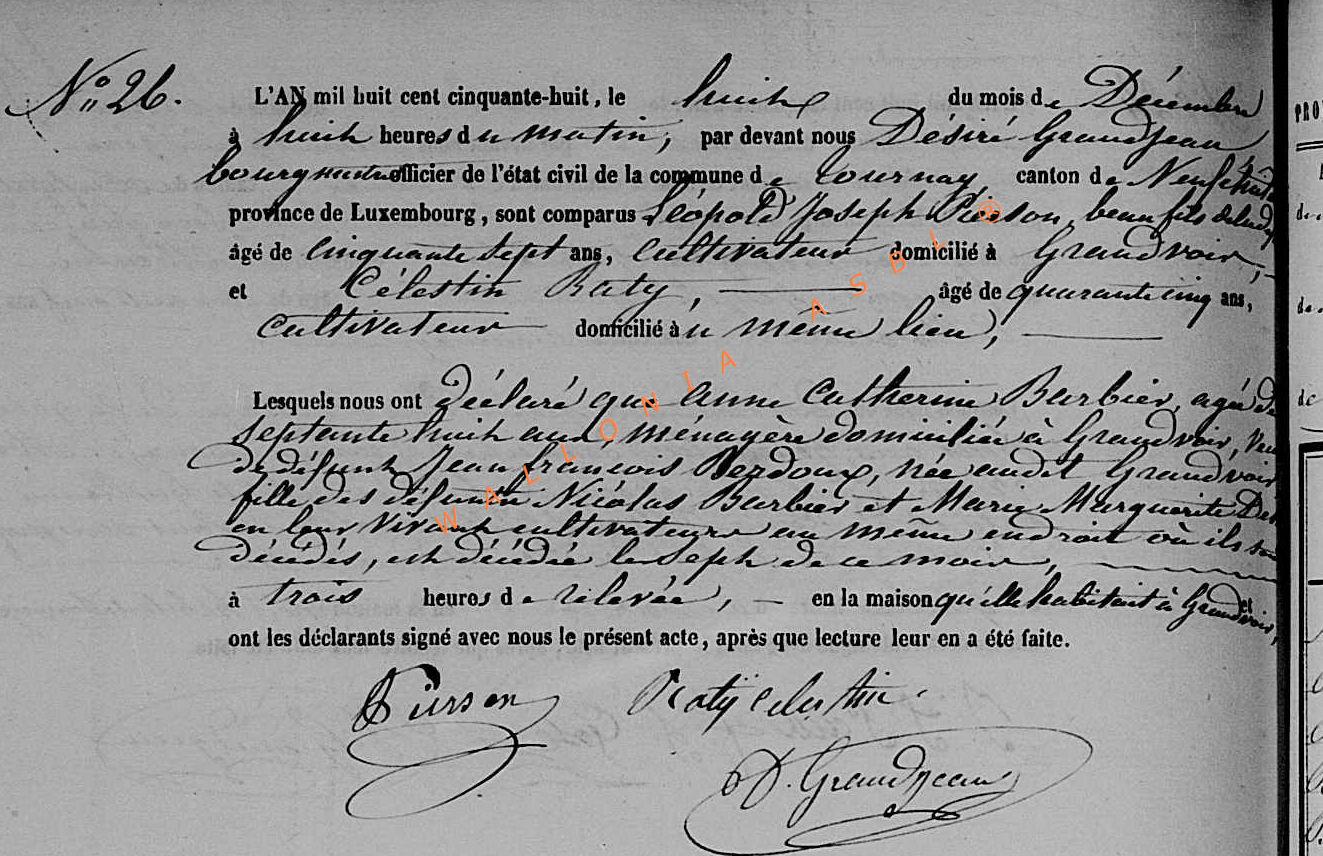 N° 26.
L'AN mil huit cent cinquante-huit, le huit du mois de Décembre
à huit heures du matin, par devant nous Désiré Grandjean
bourgmestre officier de l'état civil de la commune de Tournay canton de Neufchât
province de Luxembourg, sont comparus Léopold Joseph Pierson, beau fils de la
âgé de cinquante sept ans, cultivateur domicilié à Grandvoir,
et Célestin Raty, âgé de quarante cinq ans,
cultivateur domicilié à u même lieu,
Lesquels nous ont déclaré que Anne Catherine Barbier, agée de
septante huit ans, ménagère domiciliée à Grandvoir,
de défunt Jean françois Perdoux, née audit Grandvoir
fille des défunts Nicolas Barbier et Marie Marguerite
en leur vivant cultivateurs au même endroit où ils
décédés, est décédée le sept de ce mois,
à trois heures de relevée, en la maison qu'elle habitait à Grandvoir, et
ont les déclarants signé avec nous le présent acte, après que lecture leur en a été faite.
Pierson Raty Celestin
D. Grandjean
WALLONIA ASBL ®
PRO
de